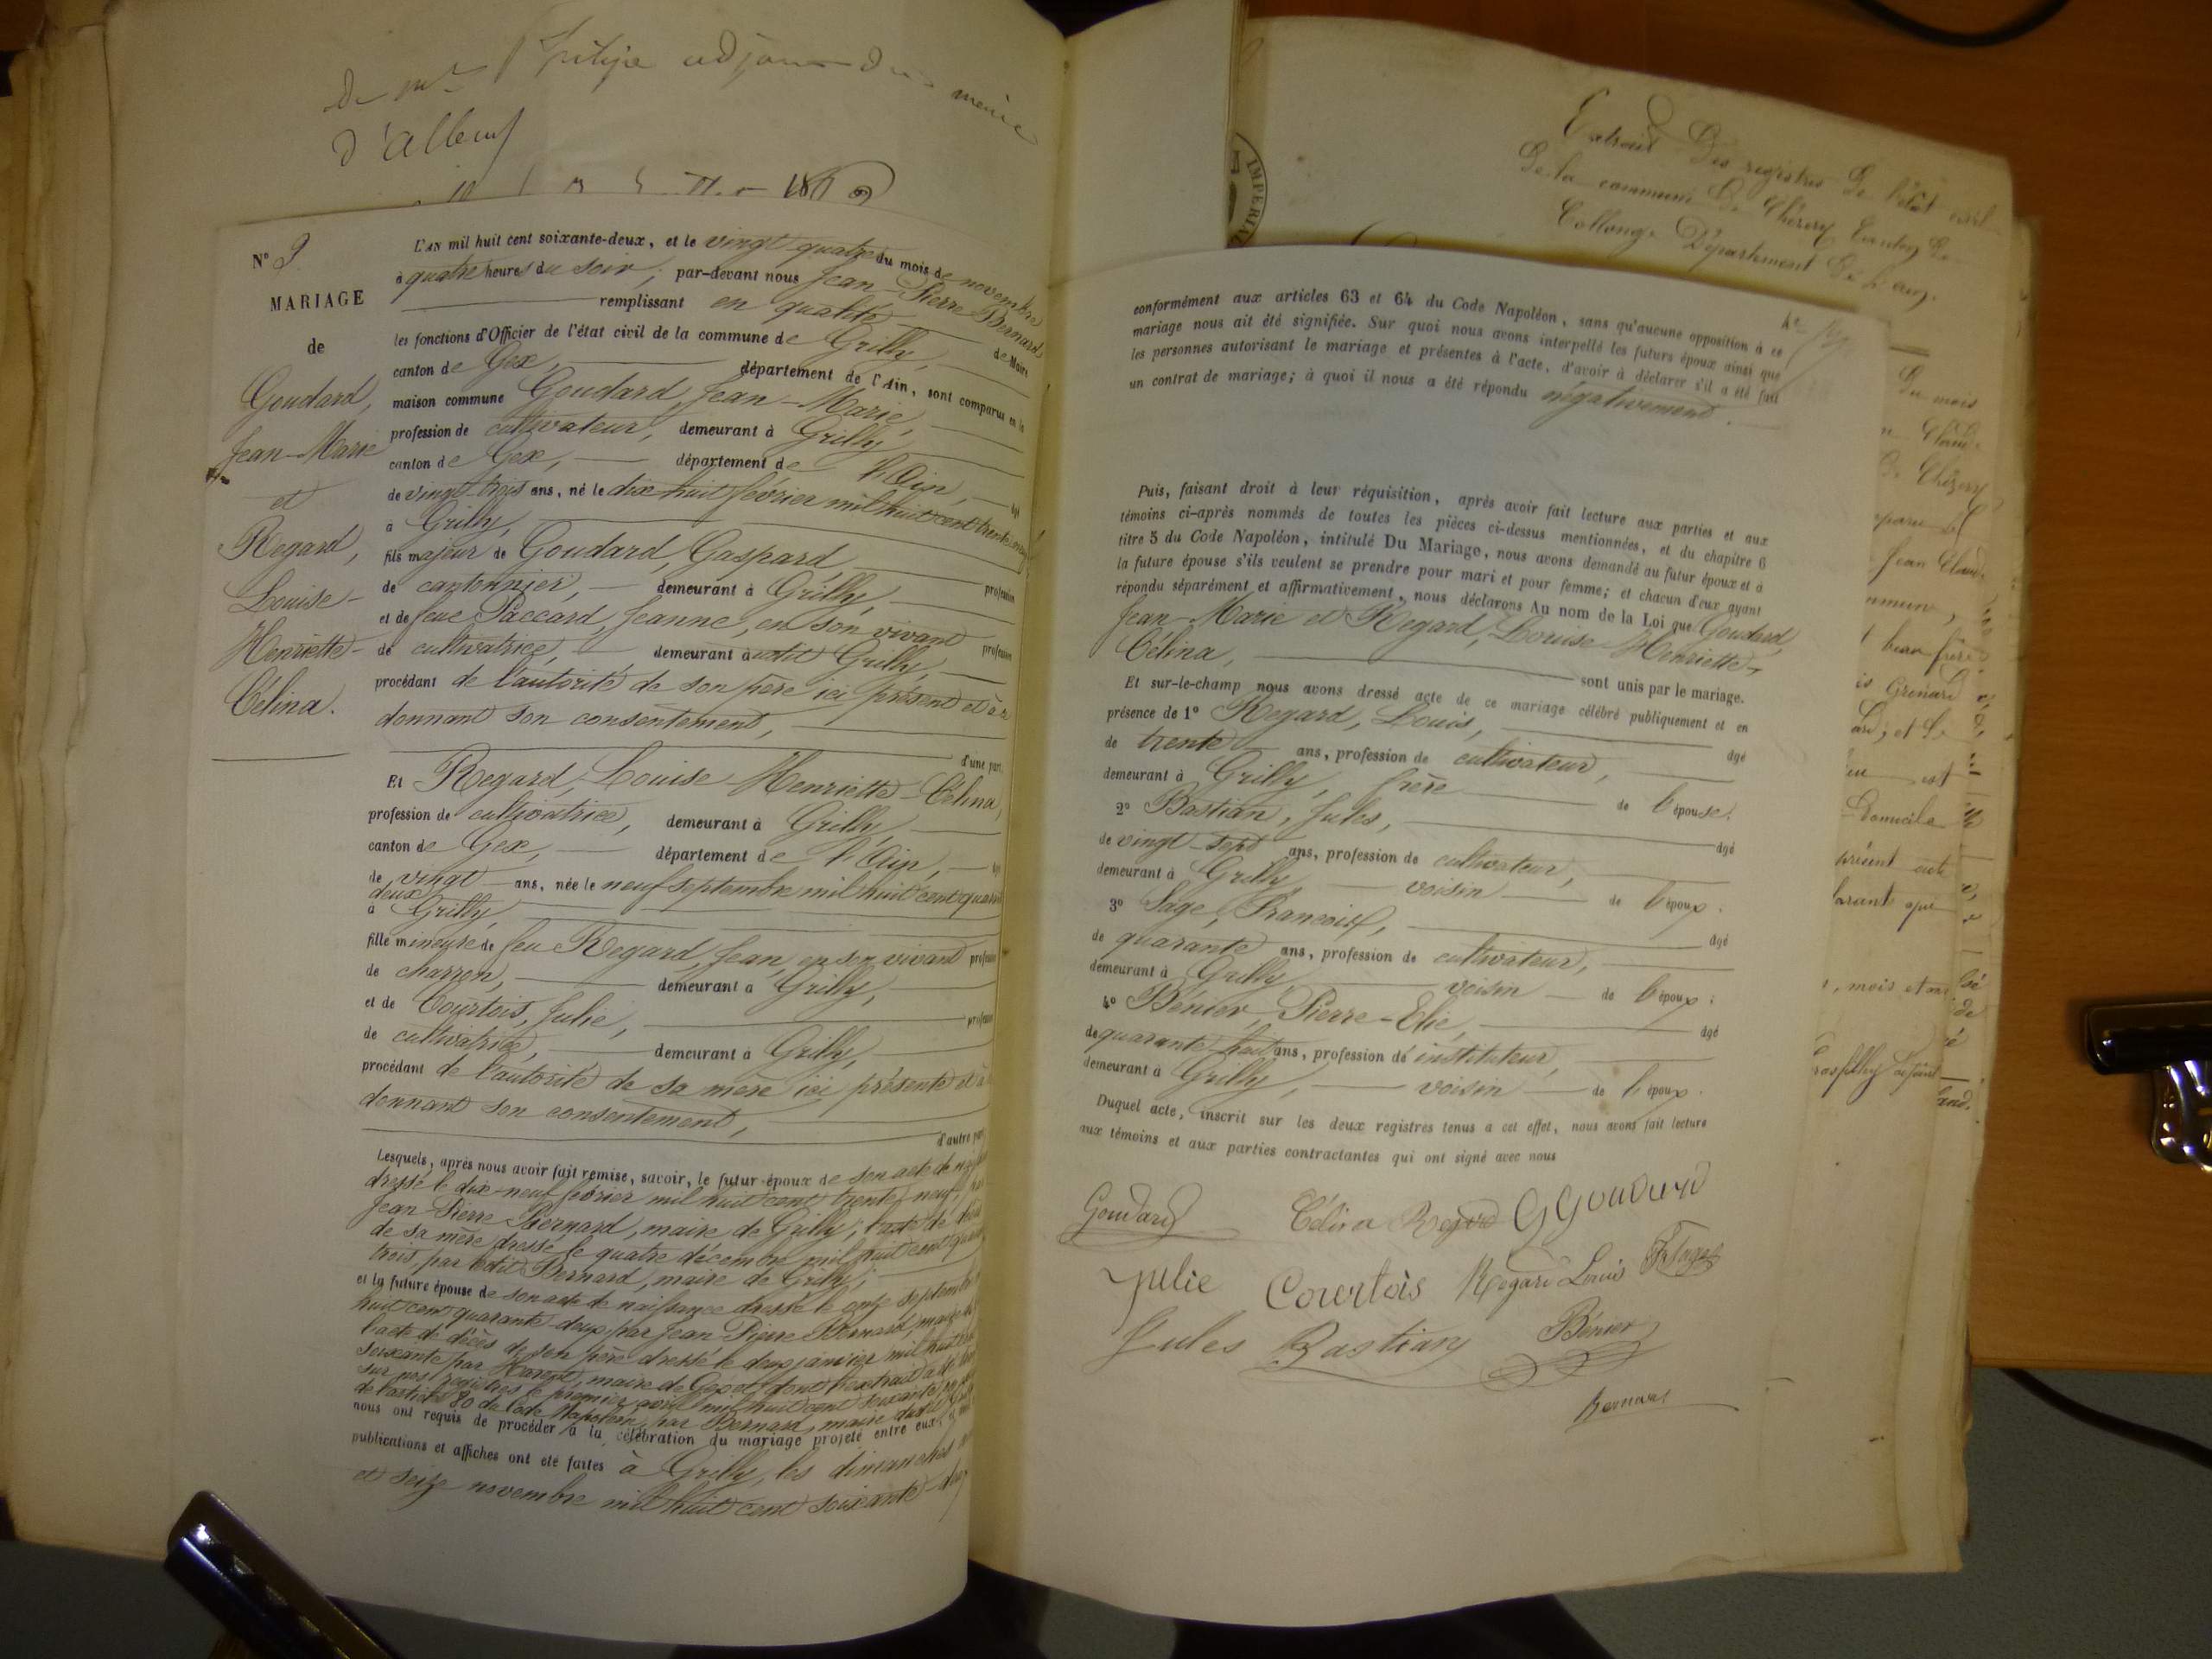 adjoint
d'
N° 9
MARIAGE
de
Goudard,
Jean-Marie
et
Regard,
Louise-
Henriette-
Célina.
L'AN mil huit cent soixante-deux, et le vingt quatre du mois de novembre
à quatre heures du soir, par-devant nous Jean-Pierre Bernard
remplissant en qualité de Maire
les fonctions d'Officier de l'état civil de la commune de Grilly,
canton de Gex, département de l'Ain, sont comparus en la
maison commune Goudard, Jean-Marie,
profession de cultivateur, demeurant à Grilly
canton de Gex, département de l'Ain, âgé
de vingt-trois ans, né le dix-huit février mil huit cent trente-neuf
à Grilly,
fils majeur de Goudard, Gaspard, profession
de cantonnier, demeurant à Grilly,
et de feue Paccard, Jeanne, en son vivant profession
de cultivatrice, demeurant à Grilly,
procédant de l'autorité de son père ici présent et
donnant son consentement,
d'une part.
Et Regard, Louise-Henriette-Célina,
profession de cultivatrice, demeurant à Grilly,
canton de Gex, département de l'Ain,
de vingt ans, née le neuf septembre mil huit cent quarante
deux
à Grilly,
fille mineure de feu Regard, Jean, en son vivant profession
de charron, demeurant à Grilly,
et de Courtois, Julie, profession
de cultivatrice, demeurant à Grilly,
procédant de l'autorité de sa mère ici présente et
donnant son consentement,
d'autre part
Lesquels, après nous avoir fait remise, savoir, le futur époux de son acte de
dressé le dix-neuf février mil huit cent trente neuf,
Jean-Pierre Bernard, maire de Grilly; l'acte de décès
de sa mère dressé le quatre décembre mil huit cent
trois, par ledit Bernard, maire de Grilly;
et la future épouse de son acte de naissance dressé le onze septembre
huit cent quarante-deux par Jean Pierre Bernard, maire
l'acte de décès de son père dressé le deux janvier mil huit cent
soixante par maire de Gex et dont l'extrait a été
sur nos registres le premier avril mil huit cent soixante
de l'article 80 du Code Napoléon, par Bernard, maire dudit
nous ont requis de procéder à la célébration du mariage projeté entre eux,
publications et affiches ont été faites à Grilly, les dimanches
et seize novembre mil huit cent soixante deux
IMPERIAL
Extrait des registres de l'état civil
de la commune de Chézery Canton de
Collonge Département de l'Ain.
conformément aux articles 63 et 64 du Code Napoléon, sans qu'aucune opposition à ce
mariage nous ait été signifiée. Sur quoi nous avons interpellé les futurs époux ainsi que
les personnes autorisant le mariage et présentes à l'acte, d'avoir à déclarer s'il a été fait
un contrat de mariage; à quoi il nous a été répondu négativement.
Puis, faisant droit à leur réquisition, après avoir fait lecture aux parties et aux
témoins ci-après nommés de toutes les pièces ci-dessus mentionnées, et du chapitre 6
titre 5 du Code Napoléon, intitulé Du Mariage, nous avons demandé au futur époux et à
la future épouse s'ils veulent se prendre pour mari et pour femme; et chacun d'eux ayant
répondu séparément et affirmativement, nous déclarons Au nom de la Loi que Goudard,
Jean-Marie et Regard, Louise-Henriette-
Célina, sont unis par le mariage.
Et sur-le-champ nous avons dressé acte de ce mariage célébré publiquement et en
présence de 1° Regard, Louis, âgé
de trente ans, profession de cultivateur,
demeurant à Grilly, frère de l'épouse.
2° Bastian, Jules, âgé
de vingt-sept ans, profession de cultivateur,
demeurant à Grilly, voisin de l'époux.
3° Sage, François, âgé
de quarante ans, profession de cultivateur,
demeurant à Grilly, voisin de l'époux;
4° Benier, Pierre-Elie, âgé
de quarante huit ans, profession de instituteur,
demeurant à Grilly, voisin de l'époux.
Duquel acte, inscrit sur les deux registres tenus à cet effet, nous avons fait lecture
aux témoins et aux parties contractantes qui ont signé avec nous
Goudard Célina Regard G Goudard
Julie Courtois Regard Louis
Jules Bastian Bénier
Bernard
Du mois
Chézery
Jean Claude
beau frère
Grenard
et le
est
Domicile
présent acte
mois et an